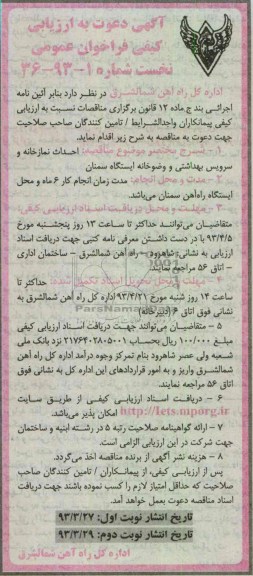 آگهی دعوت به ارزیابی
کیفی فراخوان عمومی
نخست شماره ۱-۹۳-۳۶
اداره کل راه آهن شمالشرق در نظر دارد بنابر آئین نامه
اجرائی بند ج ماده ۱۲ قانون برگزاری مناقصات نسبت به ارزیابی
کیفی پیمانکاران واجدالشرایط / تامین کنندگان صاحب صلاحیت
جهت دعوت به مناقصه به شرح زیر اقدام نماید.
۱- شرح مختصر موضوع مناقصه: احداث نمازخانه و
سرویس بهداشتی و وضوخانه ایستگاه سمنان
۲- مدت و محل انجام: مدت زمان انجام کار ۶ ماه و محل
ایستگاه راه‌آهن سمنان می‌باشد.
۳- مهلت و محل دریافت اسناد ارزیابی کیفی:
متقاضیان می‌توانند حداکثر تا ساعت ۱۳ روز پنجشنبه مورخ
۹۳/۴/۵ با در دست داشتن معرفی نامه کتبی جهت دریافت اسناد
ارزیابی به نشانی: شاهرود - راه آهن شمالشرق - ساختمان اداری
- اتاق ۵۶ مراجعه نمایند.
۴- مهلت و محل تحویل اسناد تکمیل شده: حداکثر تا
ساعت ۱۴ روز شنبه مورخ ۹۳/۴/۲۱ اداره کل راه آهن شمالشرق به
نشانی فوق اتاق ۶ (دبیرخانه)
۵- متقاضیان می‌توانند جهت دریافت اسناد ارزیابی کیفی
مبلغ ۱۰۰/۰۰۰ ریال بحساب ۲۱۷۶۴۰۲۸۰۵۰۰۱ نزد بانک ملی
شعبه ولی عصر شاهرود بنام تمرکز وجوه درآمد اداره کل راه آهن
شمالشرق واریز و به امور قراردادهای این اداره کل به نشانی فوق
اتاق ۵۶ مراجعه نمایند.
۶- دریافت اسناد ارزیابی کیفی از طریق سایت
http://iets.mporg.ir امکان پذیر می‌باشد.
۷- ارائه گواهینامه صلاحیت رتبه ۵ در رشته ابنیه و ساختمان
جهت شرکت در این ارزیابی الزامی است.
۸- هزینه نشر آگهی از برنده مناقصه اخذ می‌گردد.
پس از ارزیابی کیفی، از پیمانکاران / تامین کنندگان صاحب
صلاحیت که حداقل امتیاز لازم را کسب نموده باشند جهت دریافت
اسناد مناقصه دعوت بعمل خواهد آمد.
تاریخ انتشار نوبت اول: ۹۳/۳/۲۷
تاریخ انتشار نوبت دوم: ۹۳/۳/۲۹
اداره کل راه آهن شمالشرق